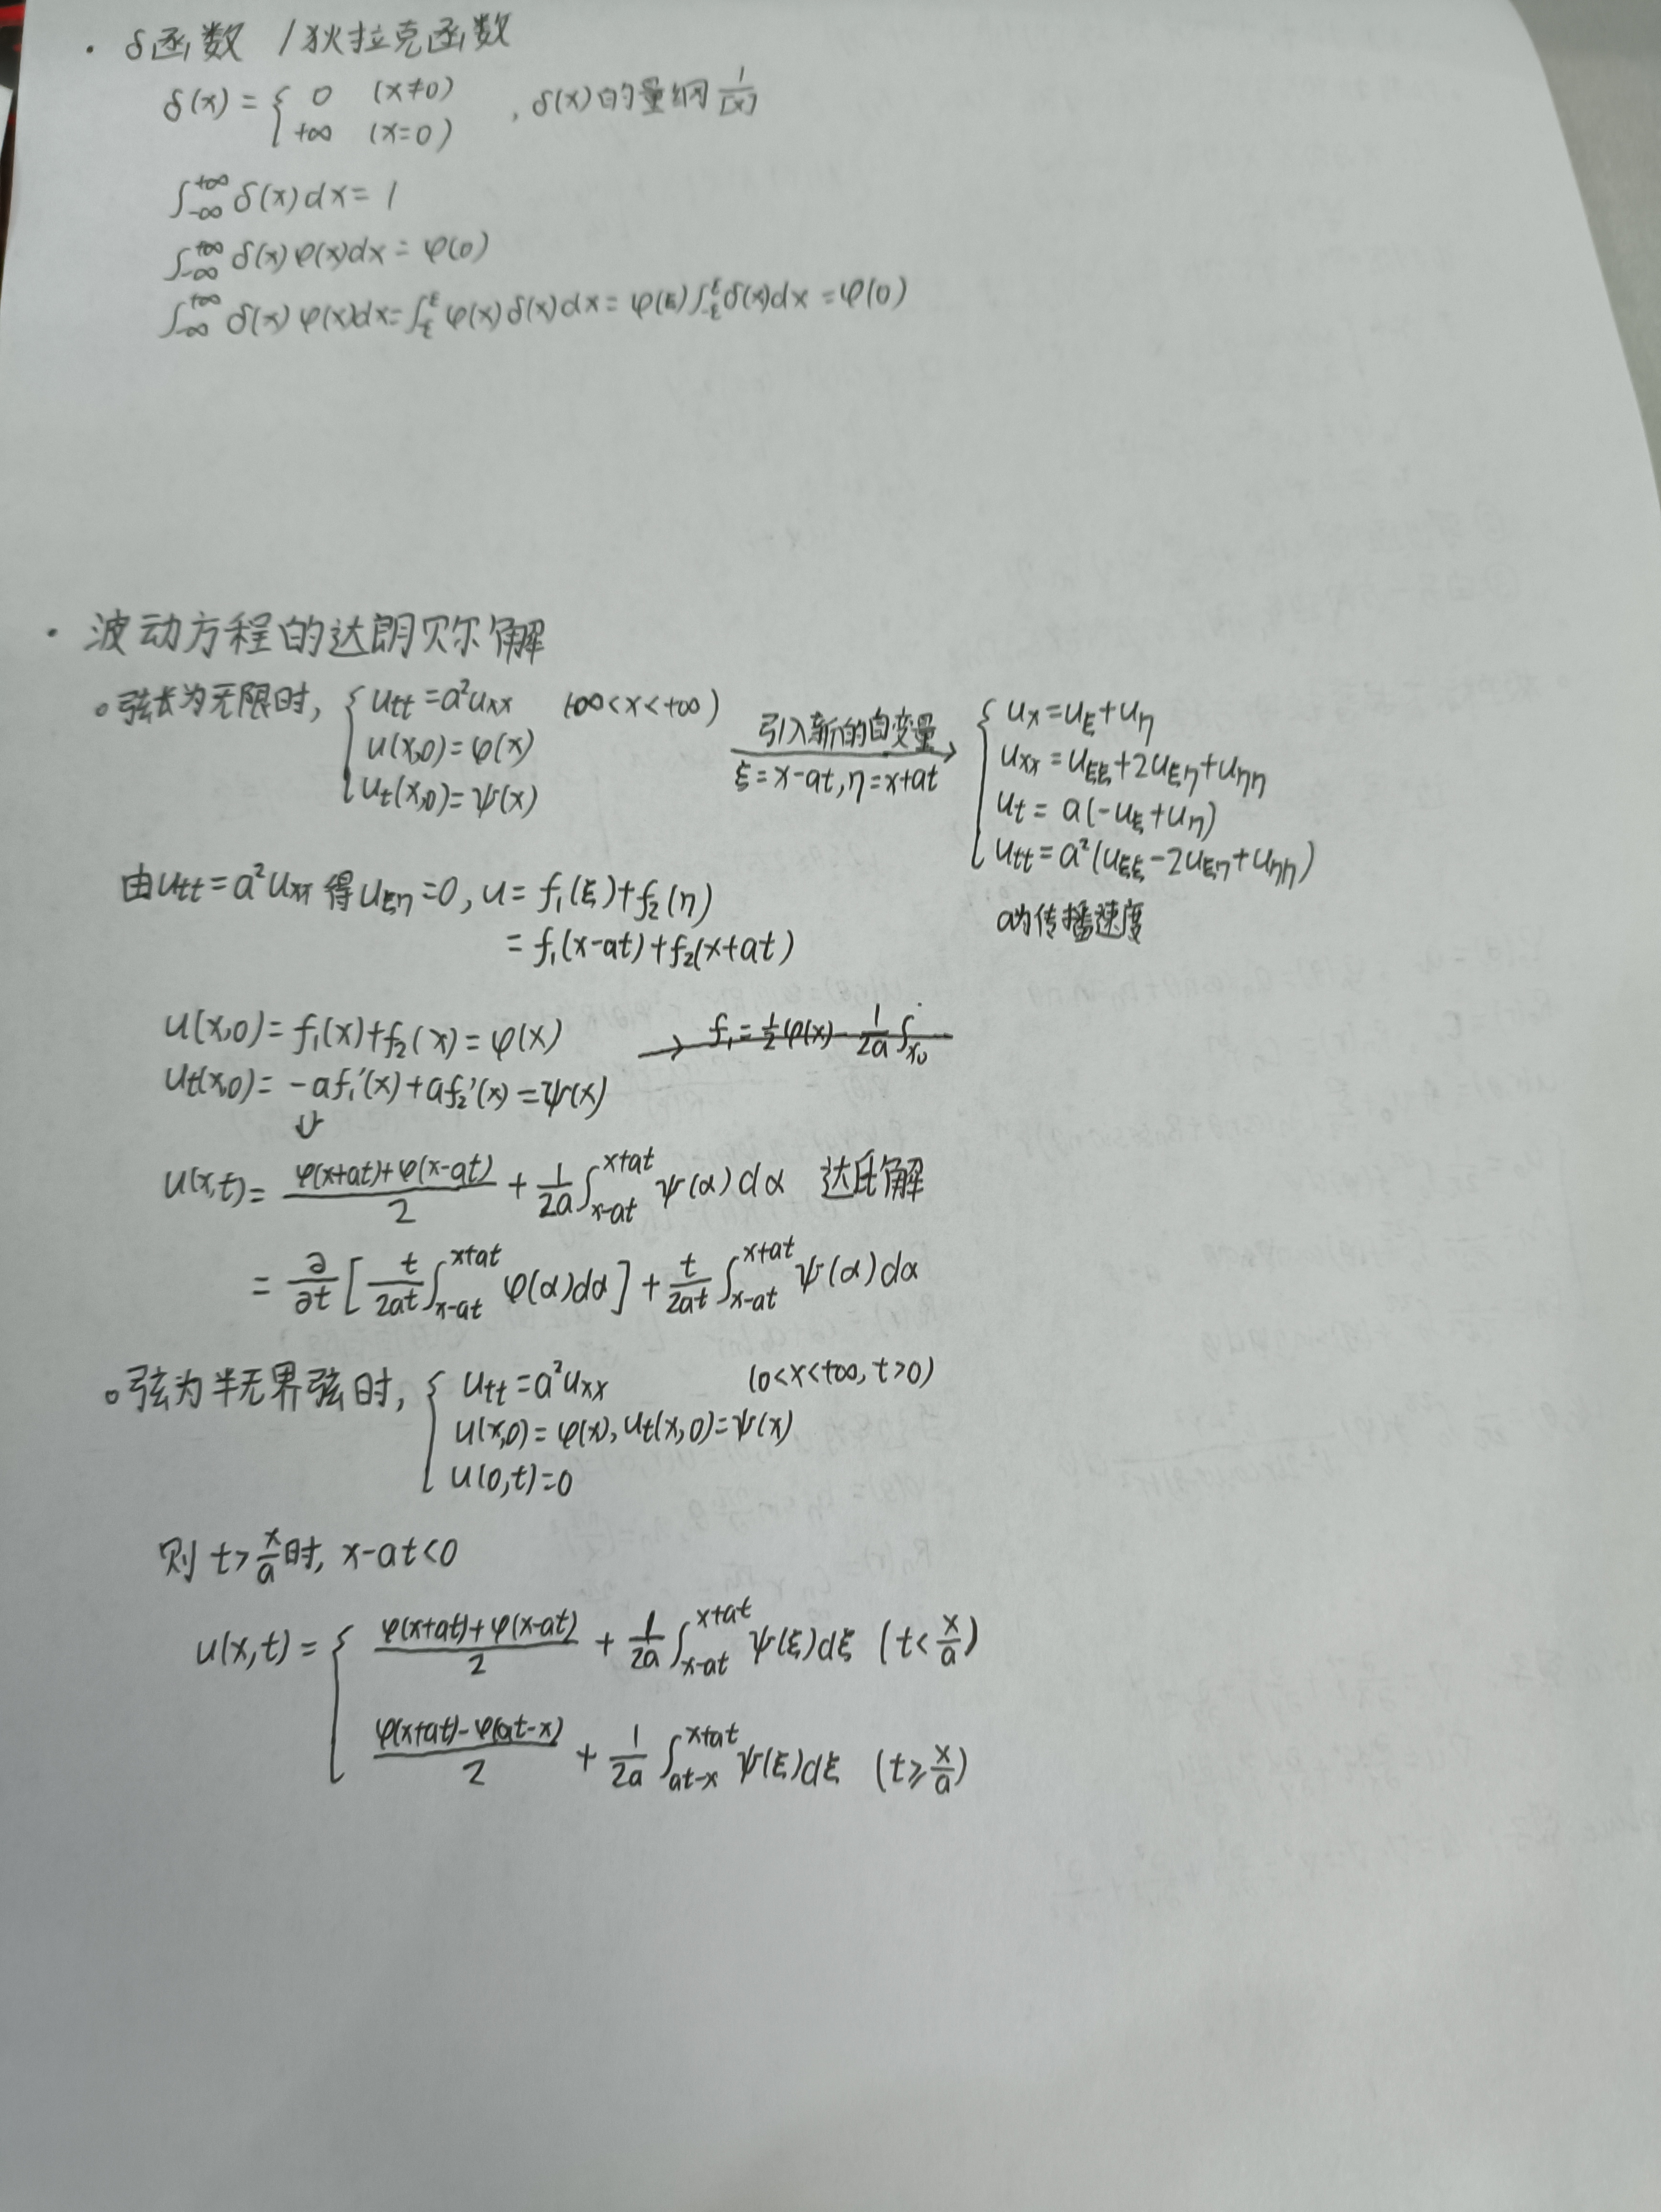 · δ函数 / 狄拉克函数
δ(x) = { 0 (x≠0)
+∞ (x=0) , δ(x)的量纲 1/[x]
∫_{-∞}^{+∞} δ(x)dx = 1
∫_{-∞}^{+∞} δ(x)φ(x)dx = φ(0)
∫_{-∞}^{+∞} δ(x)φ(x)dx = ∫_{-ε}^{ε} φ(x)δ(x)dx = φ(ξ)∫_{-ε}^{ε} δ(x)dx = φ(0)
· 波动方程的达朗贝尔解
。弦长为无限时, { u_tt = a²u_xx (-∞<x<+∞)
u(x,0) = φ(x)
u_t(x,0) = ψ(x)
引入新的自变量
ξ = x-at, η = x+at
{ u_x = u_ξ + u_η
u_xx = u_ξξ + 2u_ξη + u_ηη
u_t = a(-u_ξ + u_η)
u_tt = a²(u_ξξ - 2u_ξη + u_ηη)
a为传播速度
由u_tt = a²u_xx 得 u_ξη = 0, u = f₁(ξ) + f₂(η)
= f₁(x-at) + f₂(x+at)
u(x,0) = f₁(x) + f₂(x) = φ(x) → f₁ = 1/2 φ(x) - 1/2a ∫_{x₀}
u_t(x,0) = -af₁'(x) + af₂'(x) = ψ(x)
⇓
u(x,t) = (φ(x+at)+φ(x-at))/2 + 1/2a ∫_{x-at}^{x+at} ψ(α)dα 达氏解
= ∂/∂t [ t/2at ∫_{x-at}^{x+at} φ(α)dα ] + t/2at ∫_{x-at}^{x+at} ψ(α)dα
。弦为半无界弦时, { u_tt = a²u_xx (0<x<+∞, t>0)
u(x,0) = φ(x), u_t(x,0) = ψ(x)
u(0,t) = 0
则 t > x/a 时, x-at<0
u(x,t) = { (φ(x+at)+φ(x-at))/2 + 1/2a ∫_{x-at}^{x+at} ψ(ξ)dξ (t < x/a)
(φ(x+at)-φ(at-x))/2 + 1/2a ∫_{at-x}^{x+at} ψ(ξ)dξ (t ≥ x/a)